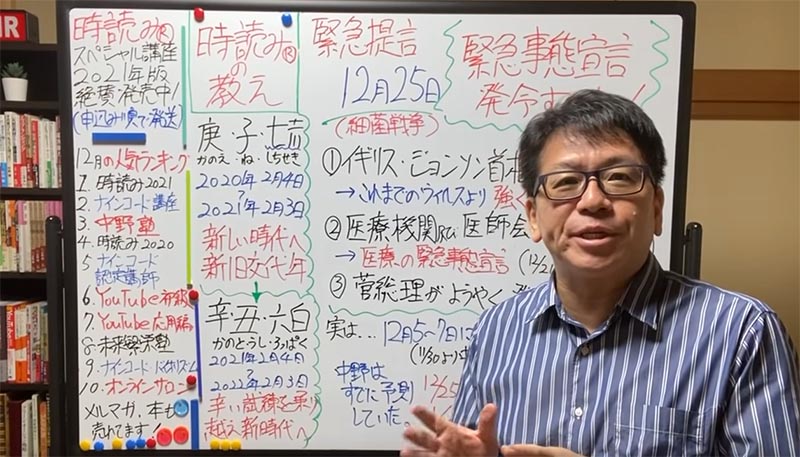 時読み®
スペシャル講座
2021年版
絶賛発売中!
12月の人気ランキング
1. 時読み2021
2. ナインコード講座
3. 中野塾
4. 時読み2020
5. ナインコード
認定講師
6. YouTube
7. YouTube応用編
8. 未来繁栄塾
9. ナインコード
10. オンラインサロン
メルマガ、本も
売れてます!
時読み®
の
教え
庚・子・七赤
かのえ・ね・しちせき
2020年2月4日
~
2021年2月3日
新しい時代へ
新旧交代年
辛・丑・六白
かのとうし・ろっぱく
2021年2月4日
~
2022年2月3日
辛い試練を乗り
越え新時代へ
緊急提言
12月25日
(細菌戦争)
緊急事態宣言
発令す
①イギリス・ジョンソン首相
→これまでのウィルスより 強
②医療機関及び医師会
→医療の緊急事態宣言 (12/2
③菅総理がようやく
実は… 12月5~7日に
(11/30より
中野は
すでに予測
していた。
12/25